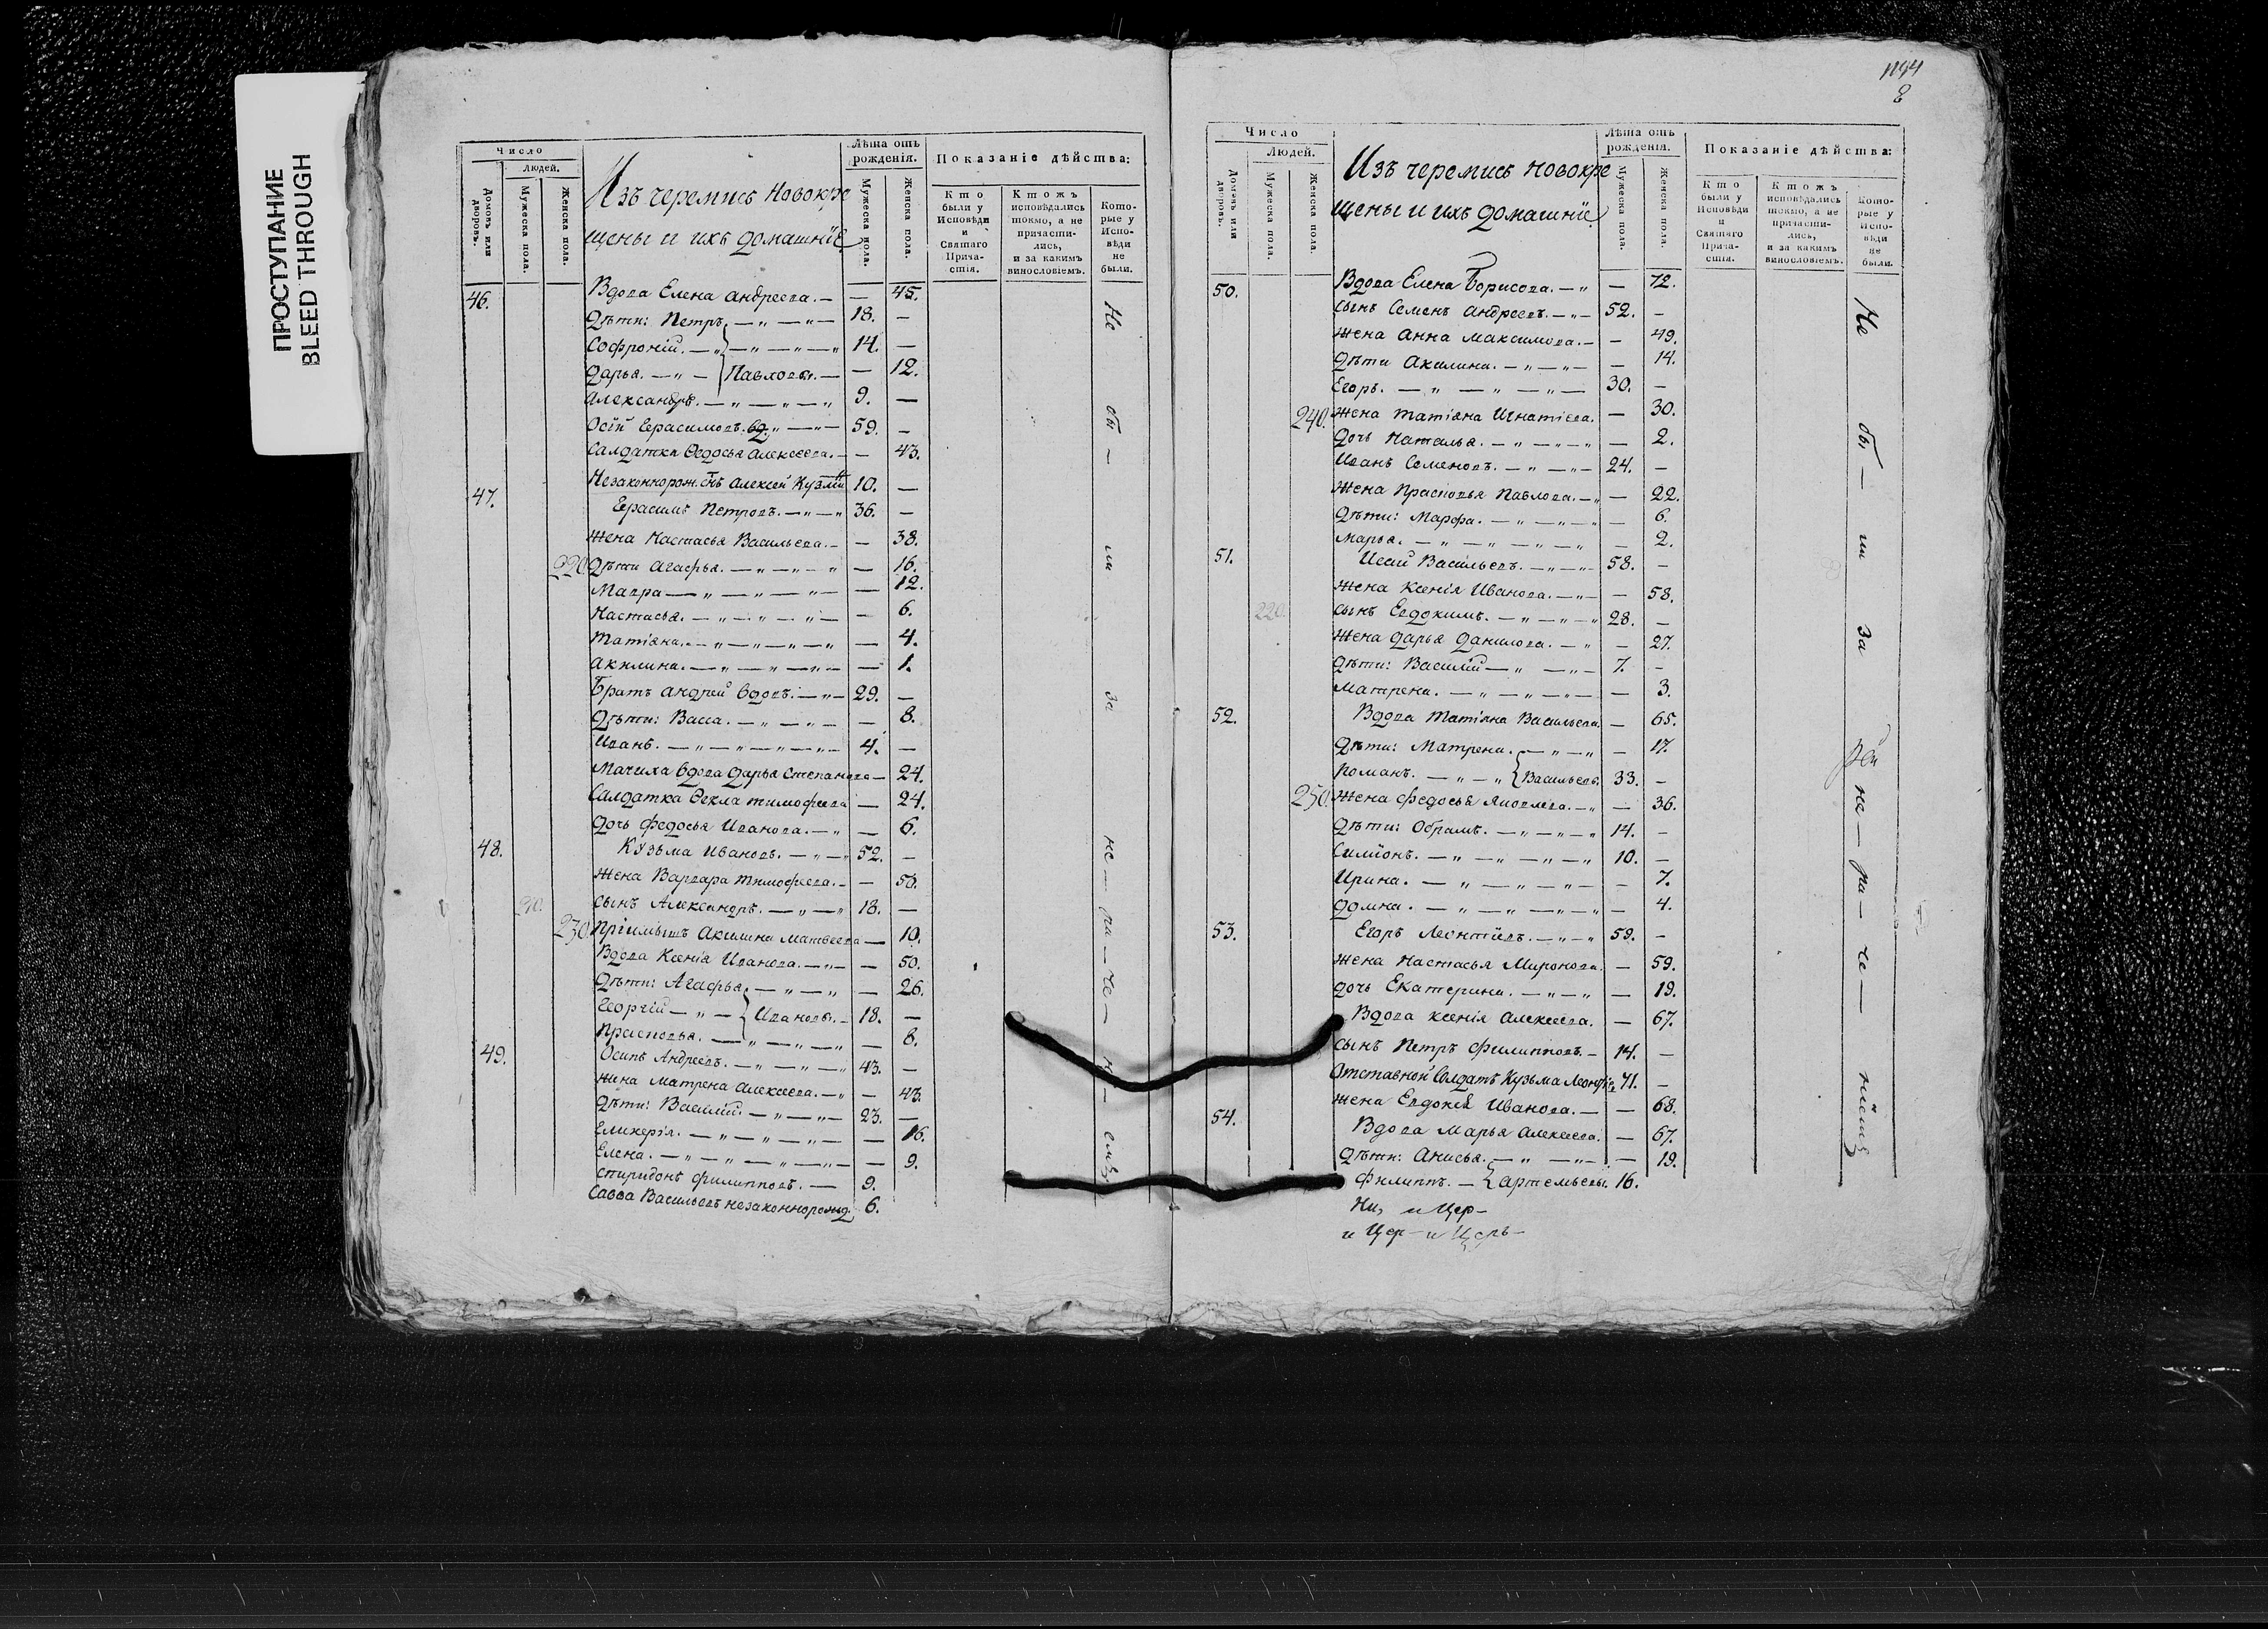 ПРОСТУПАНИЕ
BLEED THROUGH
Число
Людей.
Домовъ или дворовъ.
Мужеска пола.
Женска пола.
Изъ черемисъ новокре
щены и ихъ домашніе
Лѣта отъ рожденія.
Мужеска пола.
Женска пола.
Показаніе дѣйства:
Кто были у Исповѣди и Святаго Прича-стія.
Ктожъ исповѣдались токмо, а не причасти-лись, и за какимъ винословіемъ.
Кото-рые у Испо-вѣди не были.
46. Вдова Елена Андреева. — — 45.
Дѣти: Петръ. — „ — „ — 18. —
Софроній. — „ — „ — „ — „ 14. —
Дарья. — „ — } Павловы. — — 12.
Александръ. — „ — „ — „ 9. —
Осій Герасимовъ. вд. „ — „ — 59. —
Салдатка Ѳедосья Алексеева. — — 43.
Незаконнорож. снъ Алексей Кузмин 10. —
47. Герасимъ Петровъ. — „ — „ 36. —
жена Настасья Васильева. — — 38.
220. Дѣти Агафья. — „ — „ — „ — 16.
Мавра — „ — „ — „ — — 12.
Настасья. — „ — „ — „ — — 6.
Татіяна. — „ — „ — „ — „ — 4.
Акилина. — „ — „ — „ — — 1.
Братъ Андрей вдовъ. — „ — 29. —
Дѣти: Васса. — „ — „ — — 8.
Иванъ. — „ — „ — „ — „ — 4. —
Мачиха вдова Дарья Степанова — 24.
Салдатка Ѳекла Тимофеева — 24.
Дочь Федосья Иванова. — „ — 6.
48. Кузьма Ивановъ. — „ — „ 52. —
жена Варвара Тимофеева. — — 50.
сынъ Александръ. — „ — „ 18. —
230. Пріимышъ Акилина Матвеева — 10.
Вдова Ксенія Иванова. — „ — — 50.
Дѣти: Агафья. — „ — „ — 26.
Георгій — „ — } Ивановы. — 18. —
Прасковья. — „ — „ — „ — 8.
49. Осипъ Андреевъ. — „ — „ — „ 43. —
жена Матрена Алексеева. — „ — 43.
Дѣти: Василій. — „ — „ — 23. —
Гликерія. — „ — „ — „ — — 16.
Елена. — „ — „ — „ — „ — — 9.
Спиридонъ Филипповъ. — 9.
Савва Васильевъ незаконнорожд. 6.
Не бы — ли за не — ра — че — н — емъ
1194
8
Число
Людей.
Домовъ или дворовъ.
Мужеска пола.
Женска пола.
Изъ черемисъ новокре
щены и ихъ домашніе
Лѣта отъ рожденія.
Мужеска пола.
Женска пола.
Показаніе дѣйства:
Кто были у Исповѣди и Святаго Прича-стія.
Ктожъ исповѣдались токмо, а не причасти-лись, и за какимъ винословіемъ.
Кото-рые у Испо-вѣди не были.
50. Вдова Елена Борисова. — „ — 72.
сынъ Семенъ Андреевъ. — „ — 52. —
жена Анна Максимова. — — 49.
Дѣти Акилина. — „ — „ — — 14.
Егоръ. — „ — „ — „ — 30. —
240. жена Татіяна Игнатіева. — 30.
Дочь Наталья. — „ — „ — „ — 2.
Иванъ Семеновъ. — „ — „ — 24. —
жена Прасковья Павлова. — „ — 22.
Дѣти: Марфа. — „ — „ — „ — 6.
Марья. — „ — „ — „ — „ — 2.
51. Исай Васильевъ. — „ — „ — 58. —
жена Ксенія Иванова. — „ — — 58.
220. сынъ Евдокимъ. — „ — „ — „ 28. —
жена Дарья Данилова. — „ — 27.
Дѣти: Василій — „ — „ — 7. —
Матрена. — „ — „ — „ — — 3.
52. Вдова Татіяна Васильева. — 65.
Дѣти: Матрена. — „ — „ — 17.
Романъ. — „ — „ } Васильевы. 33. —
250. жена Федосья Яковлева. — „ — 36.
Дѣти: Обрамъ. — „ — „ — „ 14. —
Симіонъ. — „ — „ — „ — „ 10. —
Ирина. — „ — „ — „ — — 7.
Домна. — „ — „ — „ — „ — 4.
53. Егоръ Леонтіевъ. — „ — „ 59. —
жена Настасья Миронова. — 59.
дочь Екатерина. — „ — „ — 19.
Вдова Ксенія Алексеева. — 67.
сынъ Петръ Филипповъ. — 14. —
Отставной Солдатъ Кузьма 71. —
жена Евдокія Иванова. — — 68.
54. Вдова Марья Алексеева. — 67.
Дѣти: Анисья. — „ — „ — — 19.
Филиппъ. — } Артемьевы. 16.
Не бы — ли за не — ра — че — ніемъ